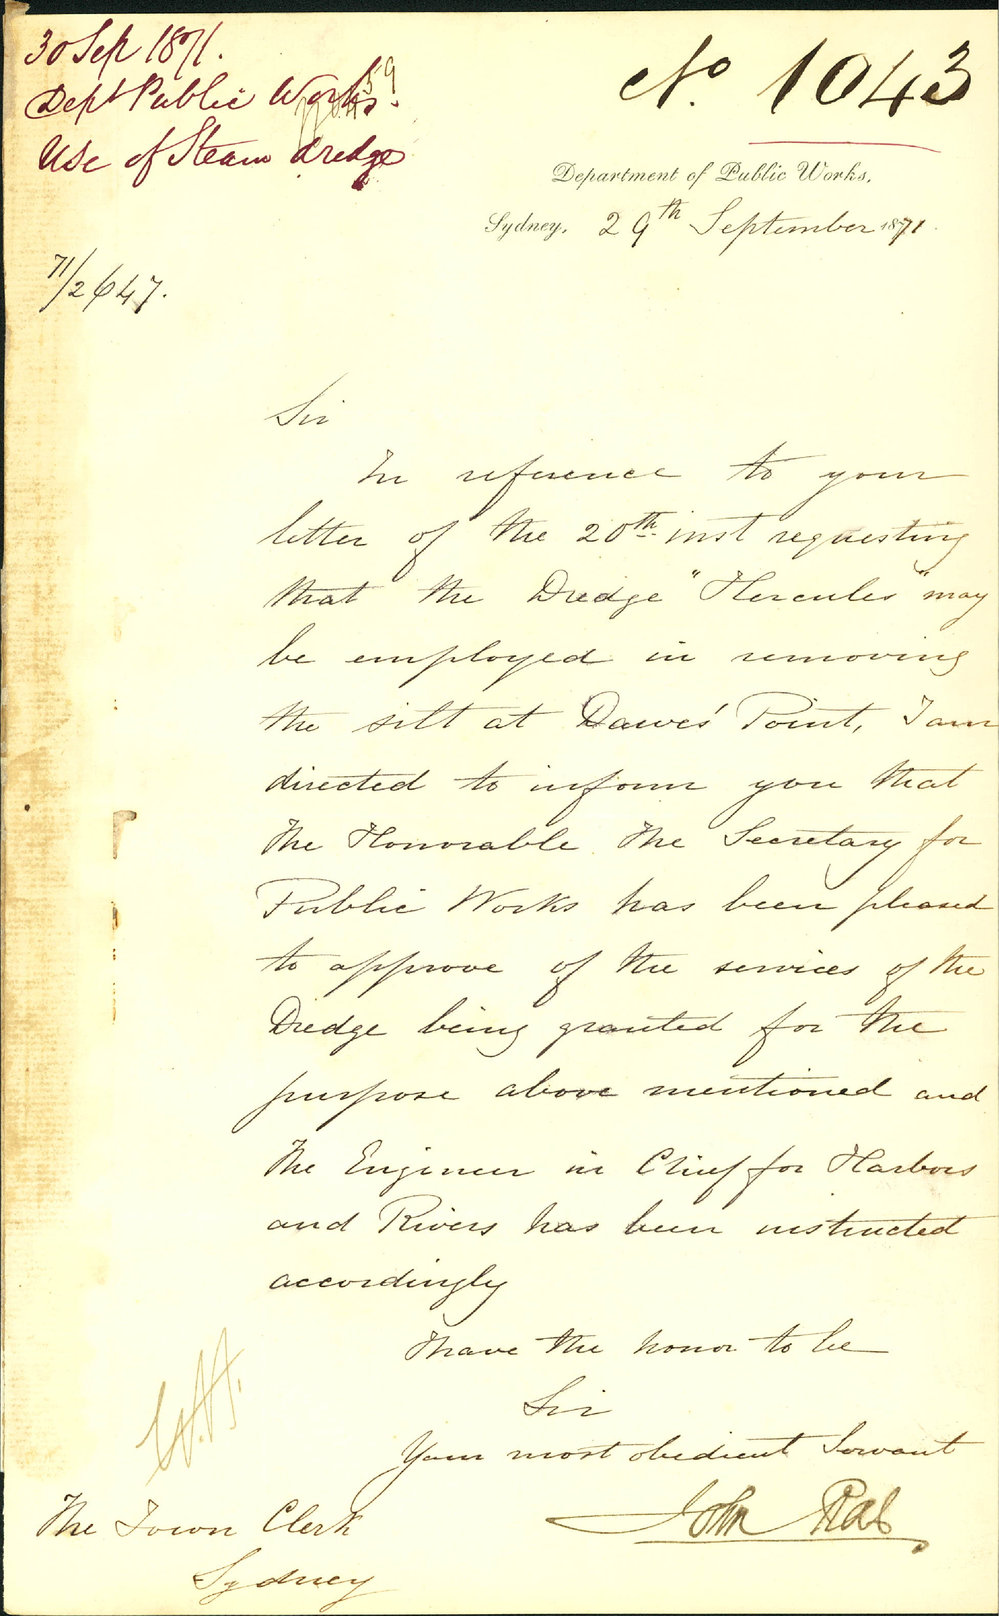 30 Sep 1871.
Dept Public Works.
Use of Steam dredge
No. 1043
Department of Public Works,
Sydney, 29th September 1871
71/2647.
Sir
In reference to your
letter of the 20th inst requesting
that the Dredge "Hercules" may
be employed in removing
the silt at Dawes' Point, I am
directed to inform you that
the Honorable the Secretary for
Public Works has been pleased
to approve of the services of the
Dredge being granted for the
purpose above mentioned and
the Engineer in Chief for Harbors
and Rivers has been instructed
accordingly
I have the honor to be
Sir
Your most obedient Servant
John Rae
The Town Clerk
Sydney